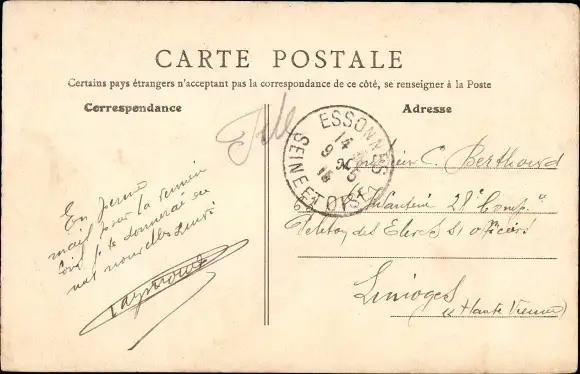 CARTE POSTALE
Certains pays étrangers n'acceptant pas la correspondance de ce côté, se renseigner à la Poste
Correspondance
Adresse
ESSONNES
14
9 5
15
SEINE ET OISE
En perme
mais pour la
fois je te donnerai
nouvelles
Raymond
Monsieur C. Berthoud
Infanterie 28e Comp
Peloton des Elèves Officiers
Limoges
Haute Vienne)